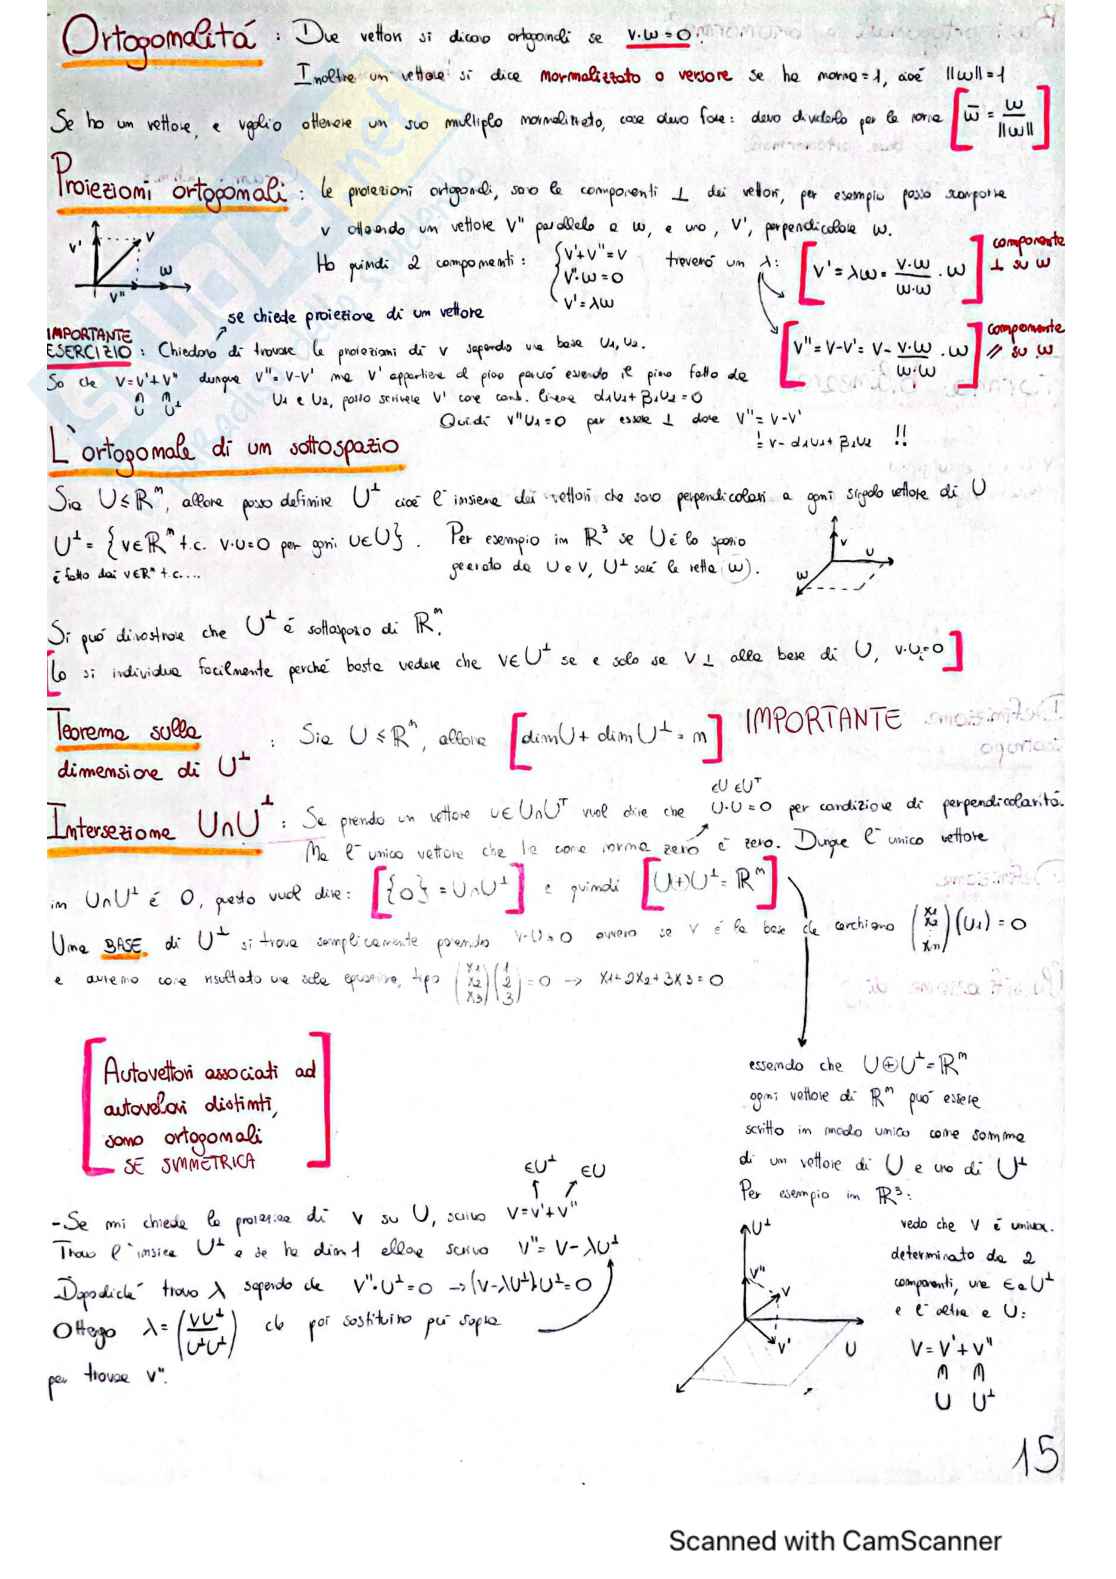 Ortogonalitá : Due vettori si dicono ortogonali se v·w=0.
Inoltre un vettore si dice normalizzato o versore se ha norma=1, cioé ||w||=1
Se ho un vettore, e voglio ottenere un suo multiplo normalizzato, cosa devo fare: devo dividerlo per la norma [w̄ = w/||w||]
Proiezioni ortogonali : le proiezioni ortogonali, sono le componenti ⊥ dei vettori, per esempio posso scomporre
v ottenendo un vettore v" parallelo a w, e uno, v', perpendicolare w.
Ho quindi 2 componenti: { v'+v"=v
v"·w=0
v'=λw
troveró un λ: [v'=λw= v·w/w·w · w] componente ⊥ su w
v' v w v"
se chiede proiezione di un vettore
[v"=v-v'= v- v·w/w·w · w] componente // su w
IMPORTANTE
ESERCIZIO : Chiedono di trovare le proiezioni di v sapendo una base u1,u2.
So che v=v'+v" dunque v"=v-v' ma v' appartiene al piano perció essendo il piano fatto da
∈U ∈U⊥ u1 e u2, posso scrivere v' come comb. lineare α1u1+β1u2=0
Quindi v"u1=0 per essere ⊥ dove v"=v-v'
= v-α1u1+β1u2 !!
L'ortogonale di un sottospazio
Sia U≤ℝⁿ, allora posso definire U⊥ cioé l'insieme dei vettori che sono perpendicolari a ogni singolo vettore di U
U⊥= {v∈ℝⁿ t.c. v·u=0 per ogni u∈U}. Per esempio in ℝ³ se U é lo spazio
é fatto dai v∈ℝⁿ t.c.... generato da u e v, U⊥ sará la retta (w).
v u w
Si puó dimostrare che U⊥ é sottospazio di ℝⁿ.
[Lo si individua facilmente perché basta vedere che v∈U⊥ se e solo se v ⊥ alla base di U, v·Ui=0]
Teorema sulla dimensione di U⊥ : Sia U≤ℝⁿ, allora [dimU+dimU⊥=n] IMPORTANTE
∈U ∈U⊤
Intersezione U∩U⊥ : Se prendo un vettore u∈U∩U⊤ vuol dire che u·u=0 per condizione di perpendicolaritá.
Ma l'unico vettore che ha come norma zero é zero. Dunque l'unico vettore
in U∩U⊥ é 0, questo vuol dire: [{0}=U∩U⊥] e quindi [U(+)U⊥=ℝⁿ]
Una BASE di U⊥ si trova semplicemente ponendo v·U=0 ovvero se v é la base che cerchiamo (x1 x2 : xn)(U1)=0
e avremo come risultato una sola equazione, tipo (x1 x2 x3)(1 2 3)=0 → x1+2x2+3x3=0
[Autovettori associati ad
autovalori distinti,
sono ortogonali
SE SIMMETRICA]
essendo che U⊕U⊥=ℝⁿ
ogni vettore di ℝⁿ puó essere
scritto in modo unico come somma
di un vettore di U e uno di U⊥
Per esempio in ℝ³:
U⊥ v" v v' U
vedo che v é univoc.
determinato da 2
componenti, una ∈ a U⊥
e l'altra a U:
v=v'+v"
∈U ∈U⊥
∈U⊥ ∈U
-Se mi chiede la proiezione di v su U, scrivo v=v'+v"
Trovo l'insieme U⊥ e se ha dim 1 allora scrivo v"=v-λU⊥
Dopodiché trovo λ sapendo che v"·U⊥=0 →(v-λU⊥)U⊥=0
Ottengo λ=(vU⊥/U⊥U⊥) che poi sostituiro piú sopra
per trovare v".
15
Scanned with CamScanner